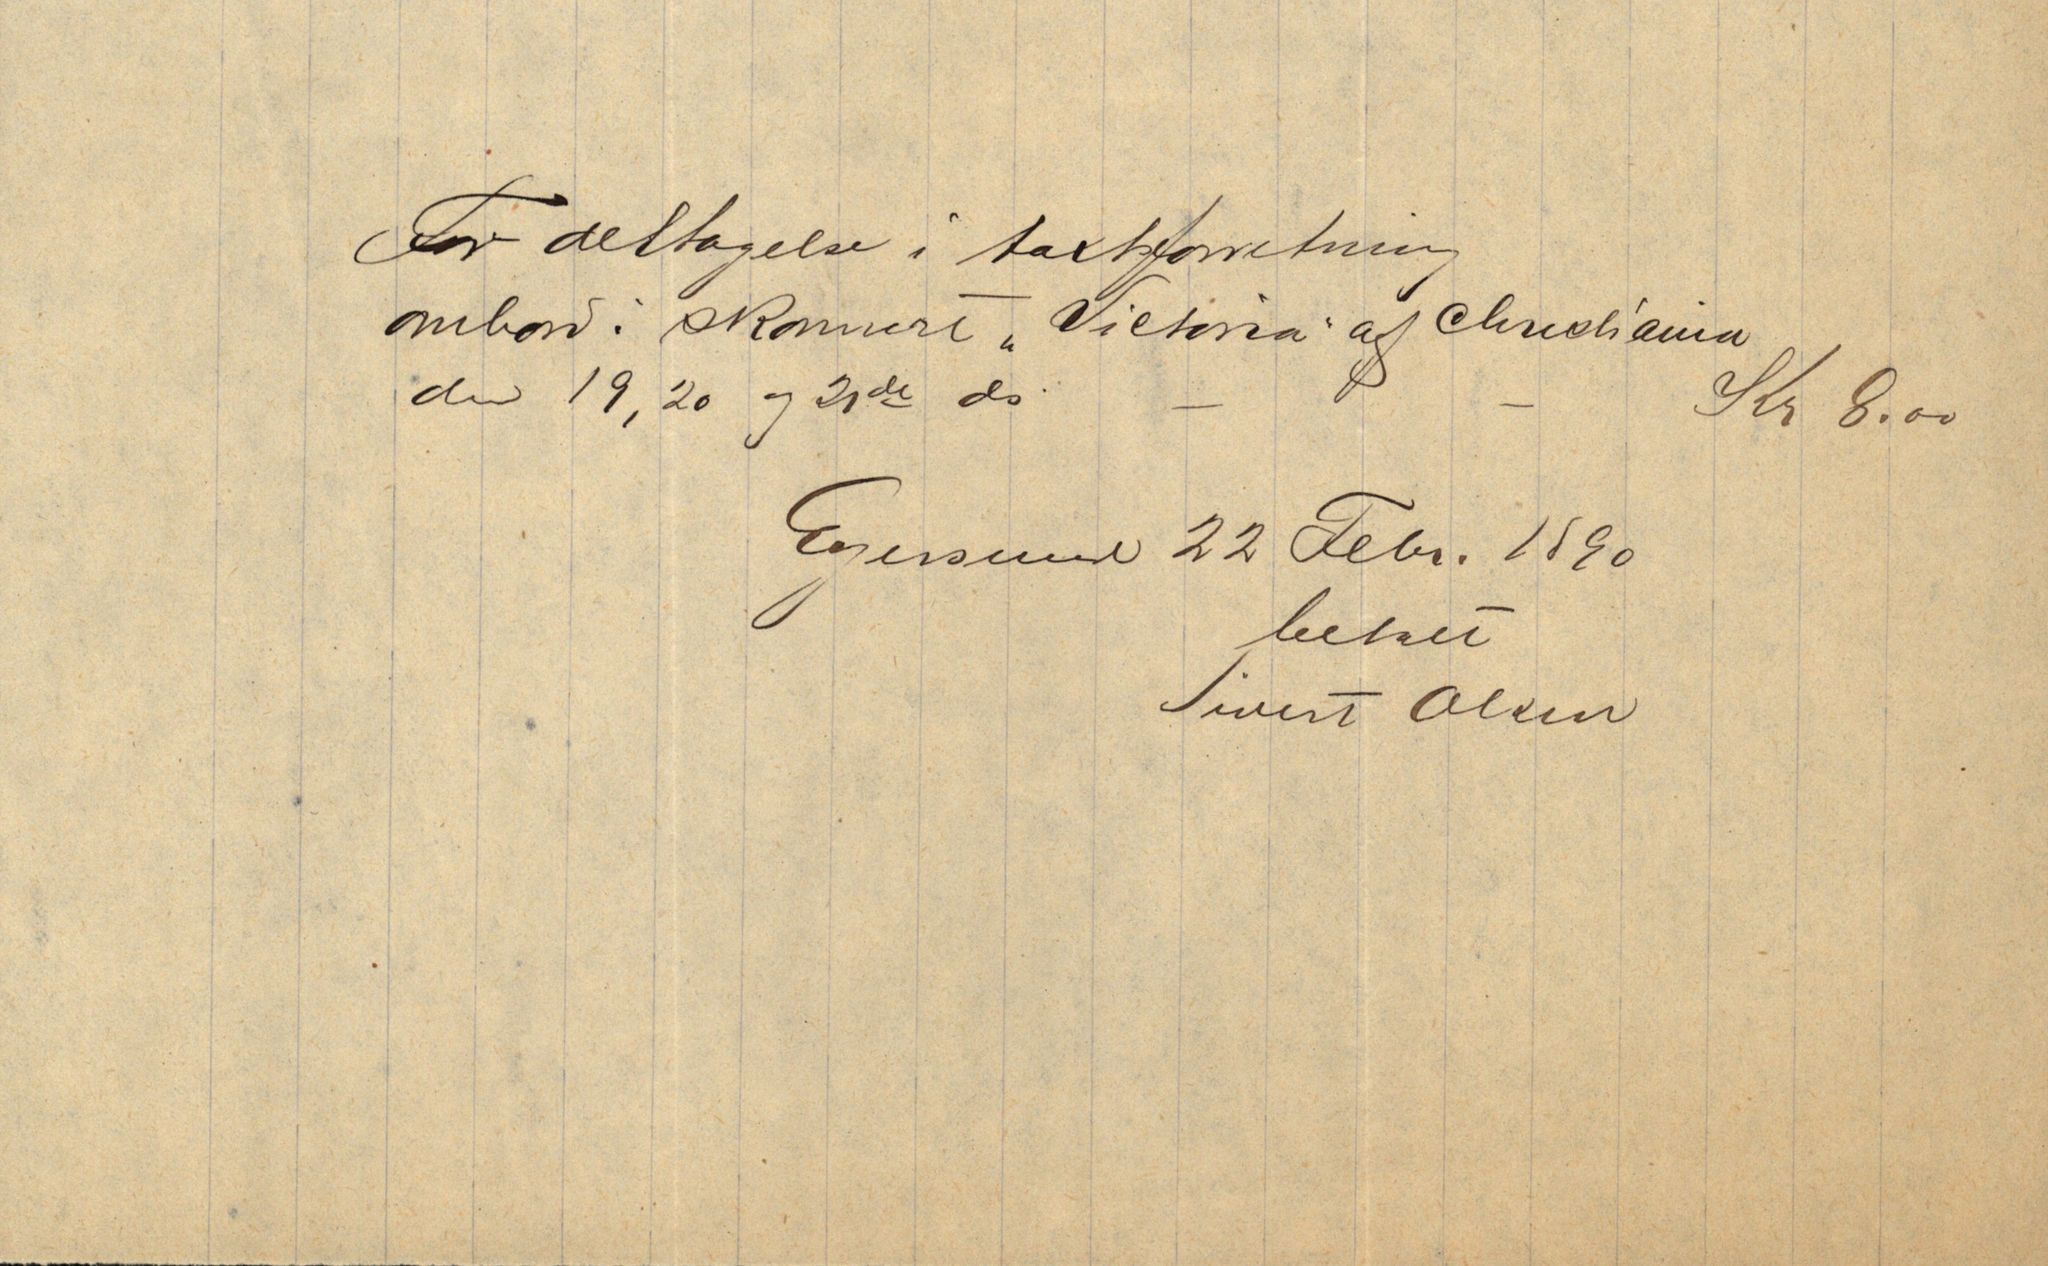 For deltagelse i taxtforretning
ombord i skonnert „Victoria" af Christiania
den 19, 20 og 21de ds — — Kr 8.00
Egersund 22 Febr. 1890
betalt
Sivert Olsen